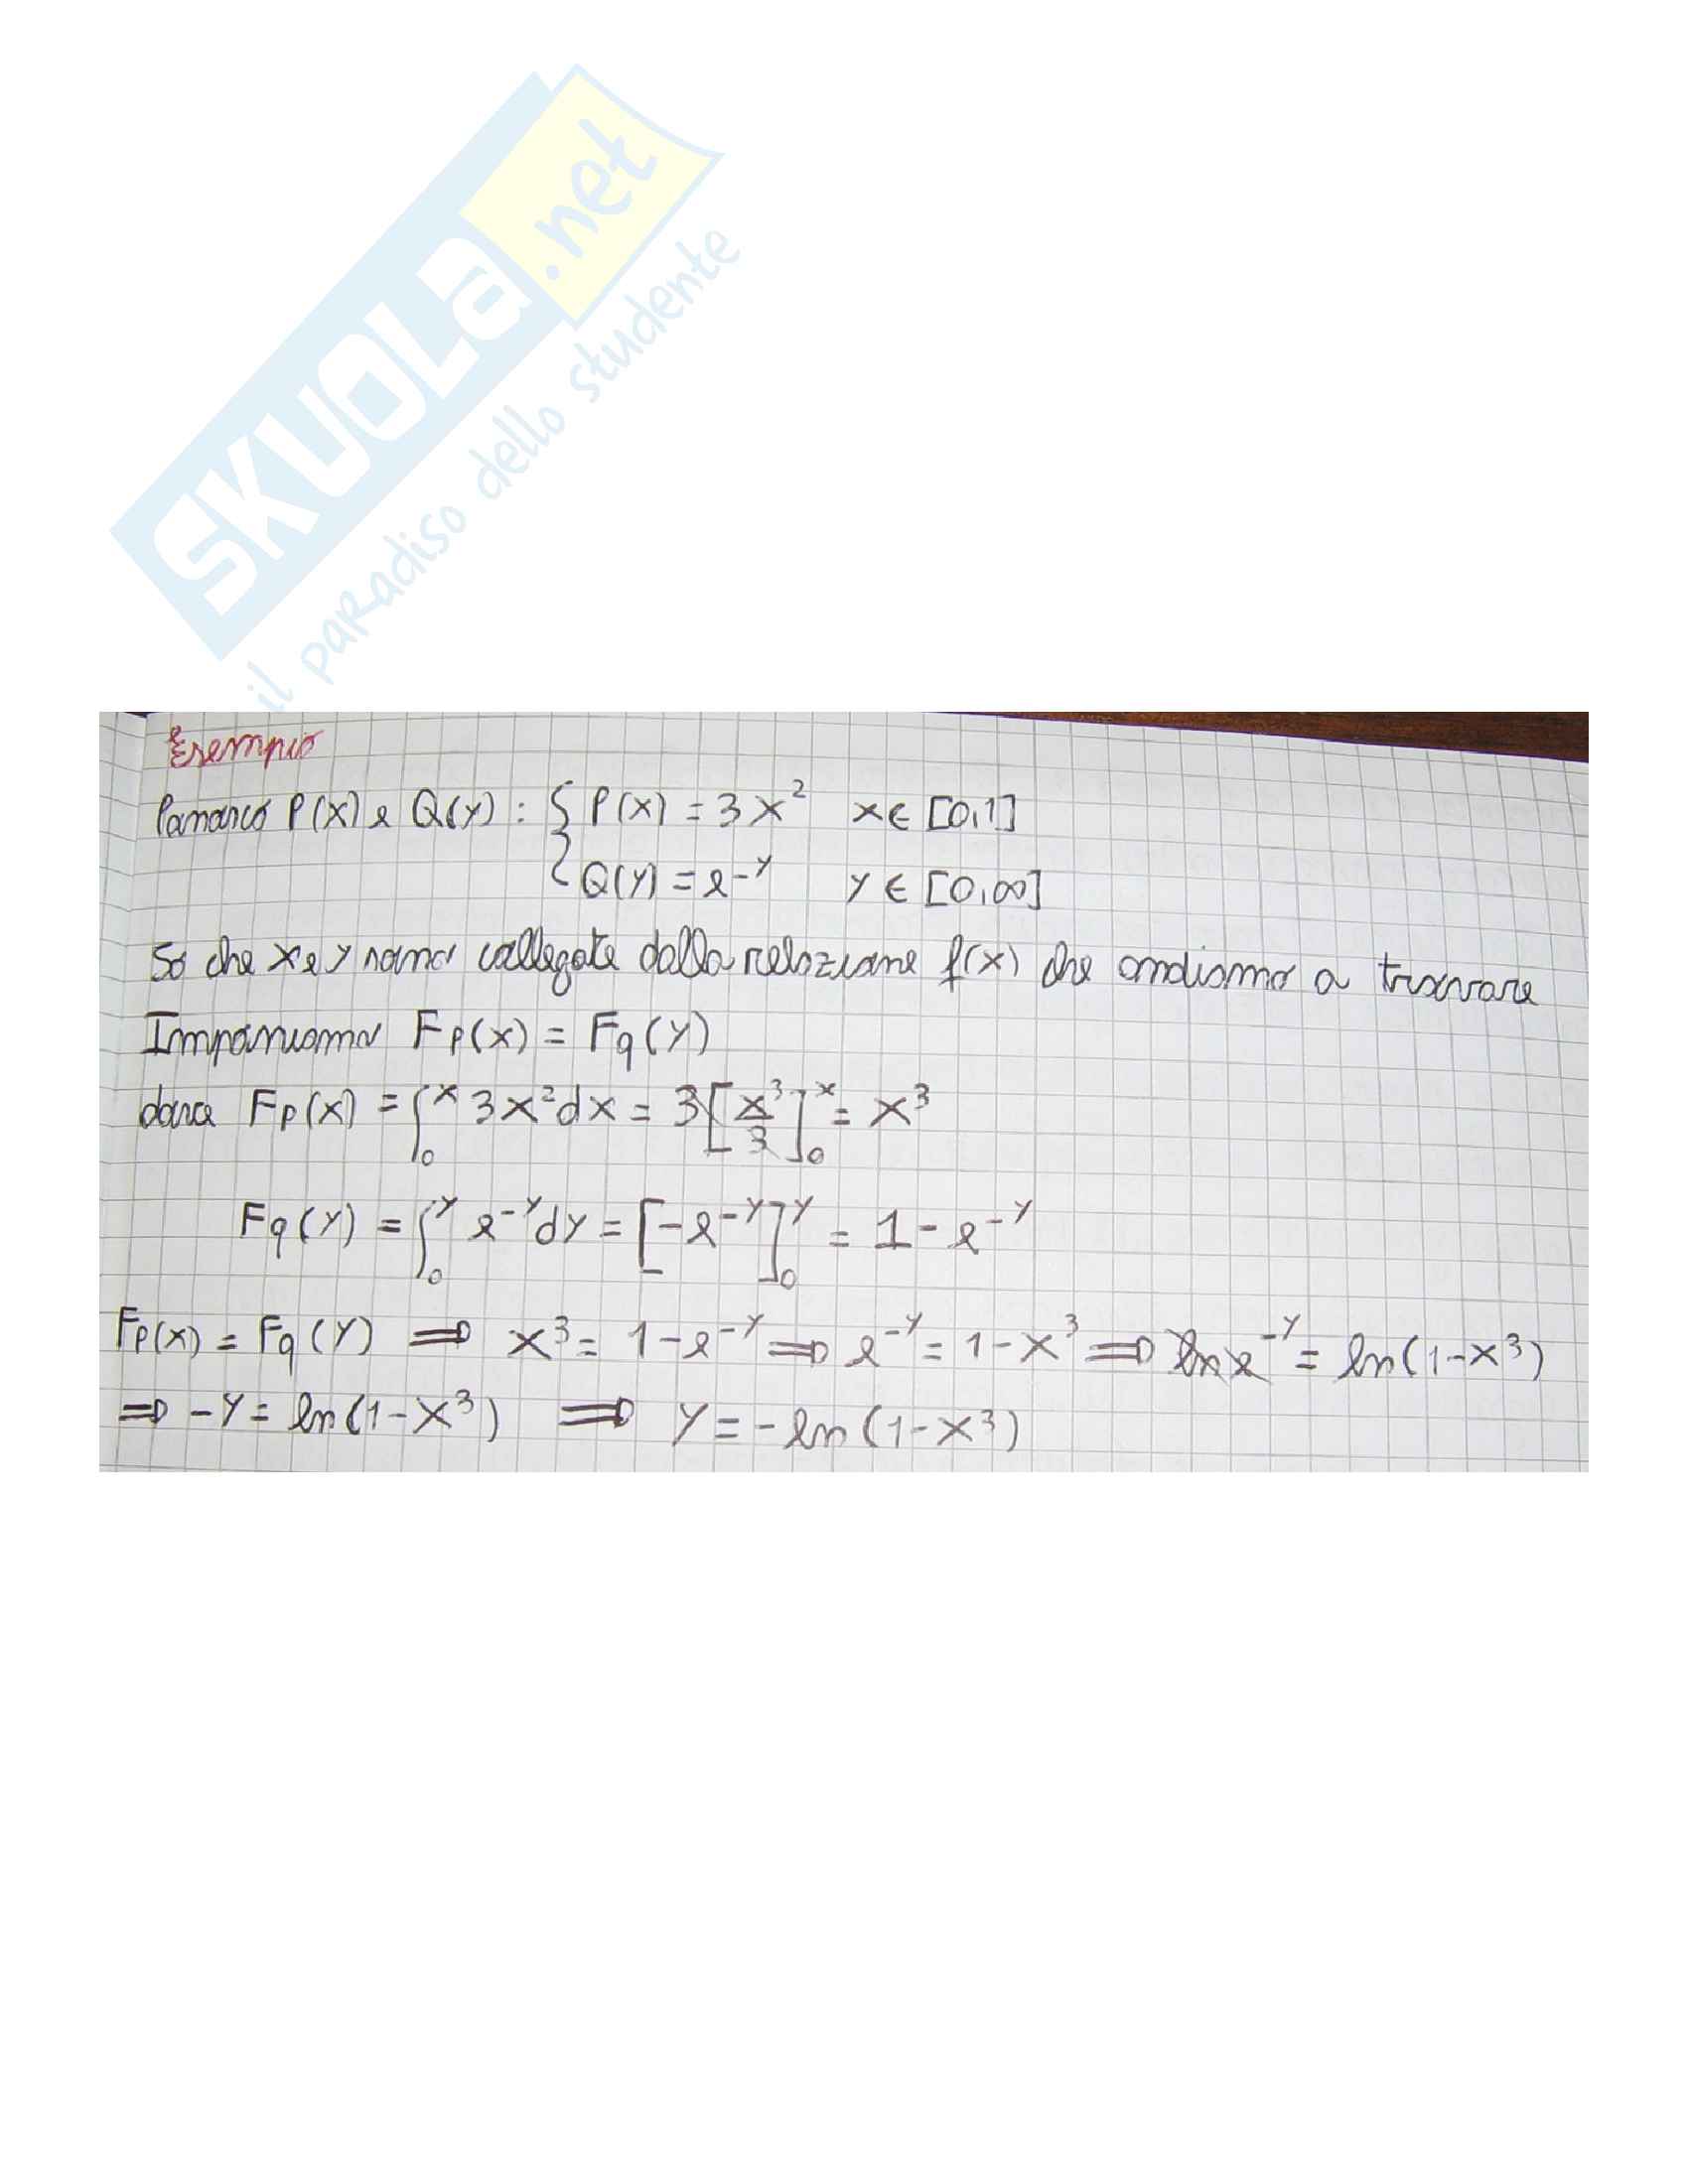 SKUOLA.net
il paradiso dello studente
Esempio
Conosco P(x) e Q(y) : { P(x) = 3x² x ∈ [0,1]
Q(y) = e^-y y ∈ [0,∞]
So che x e y sono collegate dalla relazione f(x) che andiamo a trovare
Imponiamo Fp(x) = Fq(y)
dove Fp(x) = ∫₀^x 3x²dx = 3[x³/3]₀^x = x³
Fq(y) = ∫₀^y e^-y dy = [-e^-y]₀^y = 1 - e^-y
Fp(x) = Fq(y) ⇒ x³ = 1 - e^-y ⇒ e^-y = 1 - x³ ⇒ ln e^-y = ln(1-x³)
⇒ -y = ln(1-x³) ⇒ y = -ln(1-x³)